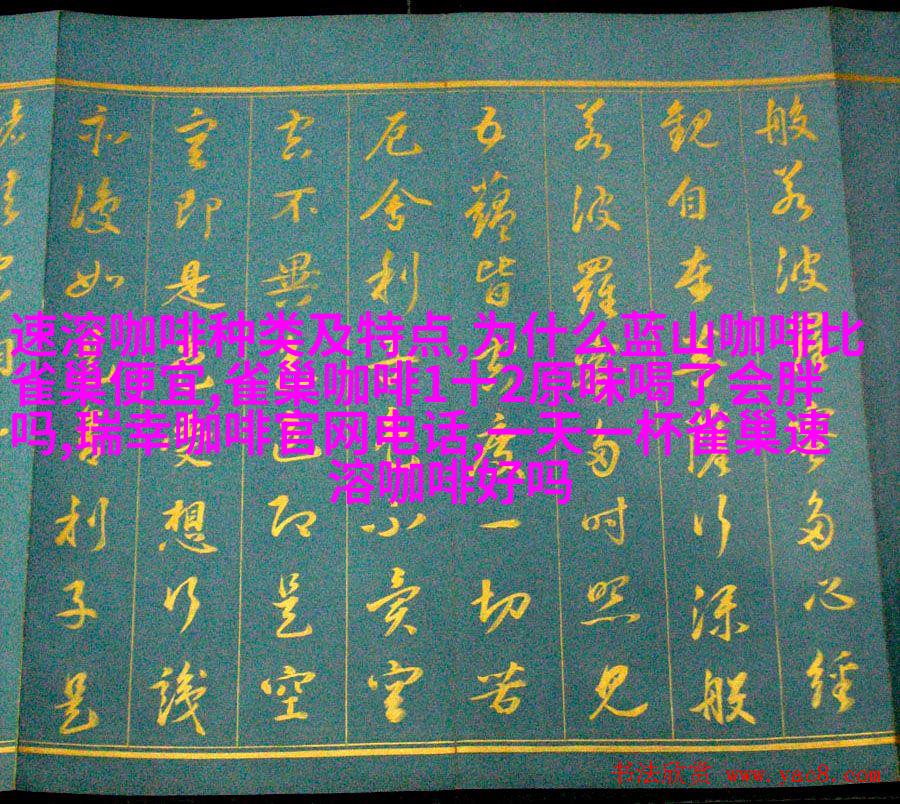 速溶咖啡种类及特点,为什么蓝山咖啡比
雀巢便宜,雀巢咖啡1十2原味喝了会胖
吗,瑞幸咖啡官网电话,一天一杯雀巢速
溶咖啡好吗
般若波羅蜜多心經
觀自在菩薩行深般
若波羅蜜多時照見
五蘊皆空度一切苦
厄舍利子色不異空
空不異色色即是空
空即是色受想行識
亦復如是舍利子是
书法欣赏 www.yac8.com